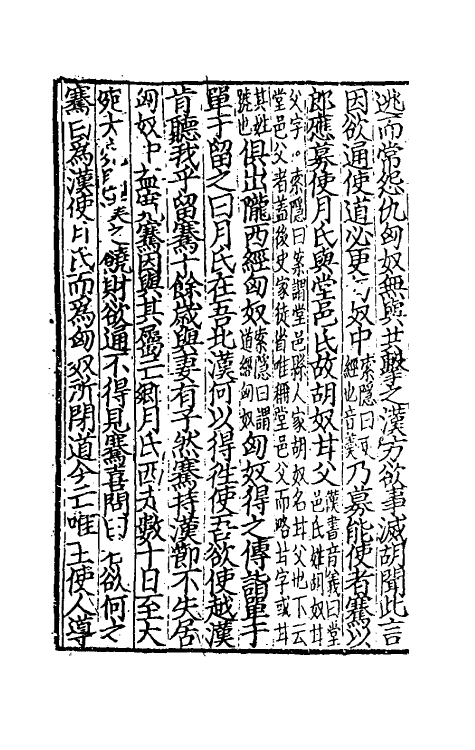 逃而常怨仇匈奴無與共擊之漢方欲事滅胡聞此言
因欲通使道必更奴中索隱曰經也音羹乃募能使者騫以
郎應募使月氏與堂邑氏故胡奴甘父漢書音義曰堂邑氏姓胡奴甘
父字。索隱曰案謂堂邑縣人家胡奴名甘父也下云
堂邑父者蓋後史家從省唯稱堂邑父而略甘字或甘
其姓號也俱出隴西經匈奴索隱曰謂道經匈奴匈奴得之傳詣單于
單于留之曰月氏在吾北漢何以得徃使吾欲使越漢
肯聽我乎留騫十餘歲與妻有子然騫持漢節不失居
匈奴中益寬騫因與其屬亡鄉月氏西走數十日至大
宛大宛之饒財欲通不得見騫喜問曰欲何之
騫曰爲漢使月氏而爲匈奴所閉道今亡唯王使人導